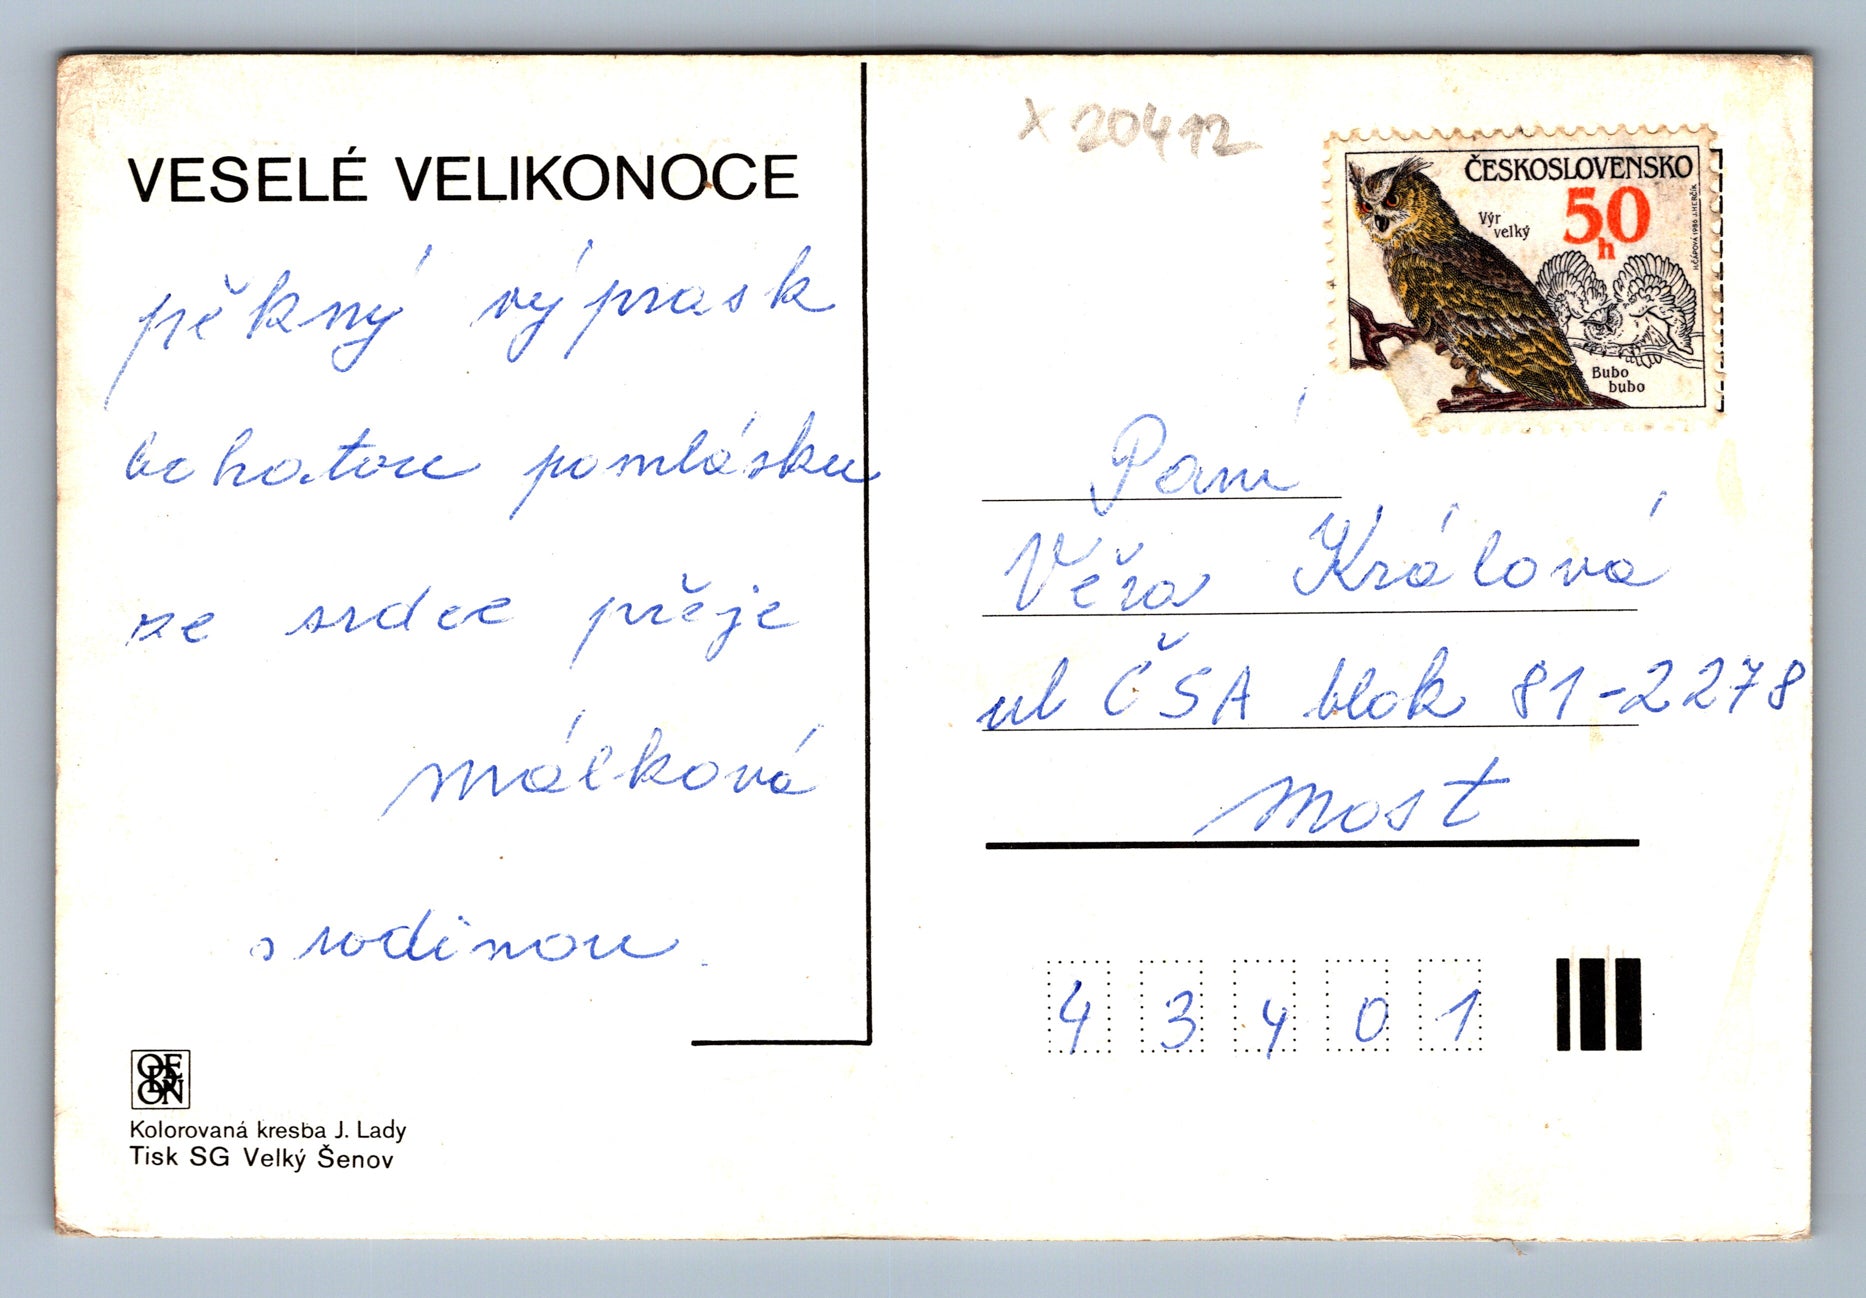 VESELÉ VELIKONOCE
pěkný výprask
bohatou pomlásku
ze srdce přeje
Málková
s rodinou.
ODEON
Kolorovaná kresba J. Lady
Tisk SG Velký Šenov
X 20412
ČESKOSLOVENSKO
50
h
Výr
velký
Bubo
bubo
Paní
Věra Králová
ul ČSA blok 81-2278
Most
43401